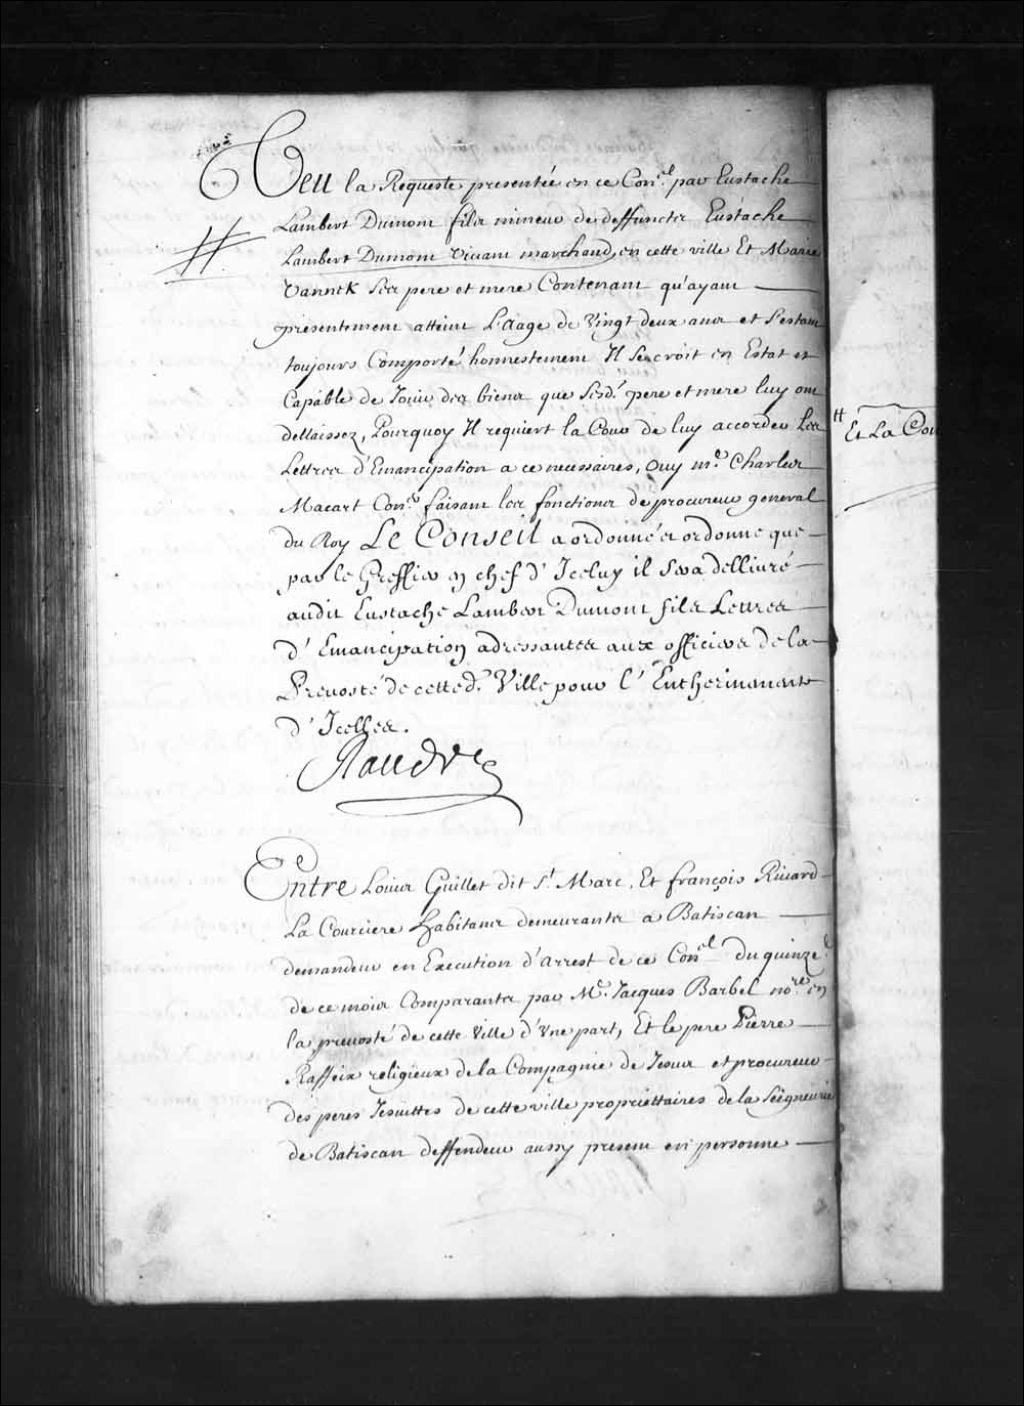 Veu la Requeste presentée en ce Con.el par Eustache
Lambert Dumont fils mineur de deffuncts Eustache
Lambert Dumont vivant marchand en cette ville Et Marie
Vannek ses pere et mere Contenant qu'ayant
presentement atteint L'Aage de Vingt deux ans et s'estant
toujours Comporté honnestement Il se croit en Estat et
Capable de Jouir des biens que sesd. pere et mere luy ont
dellaissez, Pourquoy Il requiert la Cour de luy accorder Les
Lettres d'Emancipation a ce necessaires, Ouy m.e Charles
Macart Con.er faisant les fonctions de procureur general
du Roy Le Conseil a ordonné et ordonne que
par le Greffier en chef d'Iceluy il sera dellivré
audit Eustache Lambert Dumont fils Lettres
d'Emancipation adressantes aux officiers de la
Prevosté de cetted. Ville pour l'Entherinement
d'Icelles.
Raudot
Entre Louis Guillet dit S.t Marc, Et françois Rivard
La Courciere habitans demeurants a Batiscan
demandeur en Execution d'arrest de ce Con.el du quinze.e
de ce mois Comparants par M.e Jacques Barbel no.re en
la prevosté de cette Ville d'Vne part, Et le pere Pierre
Raffeix religieux de la Compagnie de Jesus et procureur
des peres Jesuittes de cette ville propriettaires de la Seigneurie
de Batiscan deffendeur aussy present en personne
# Et La Cou